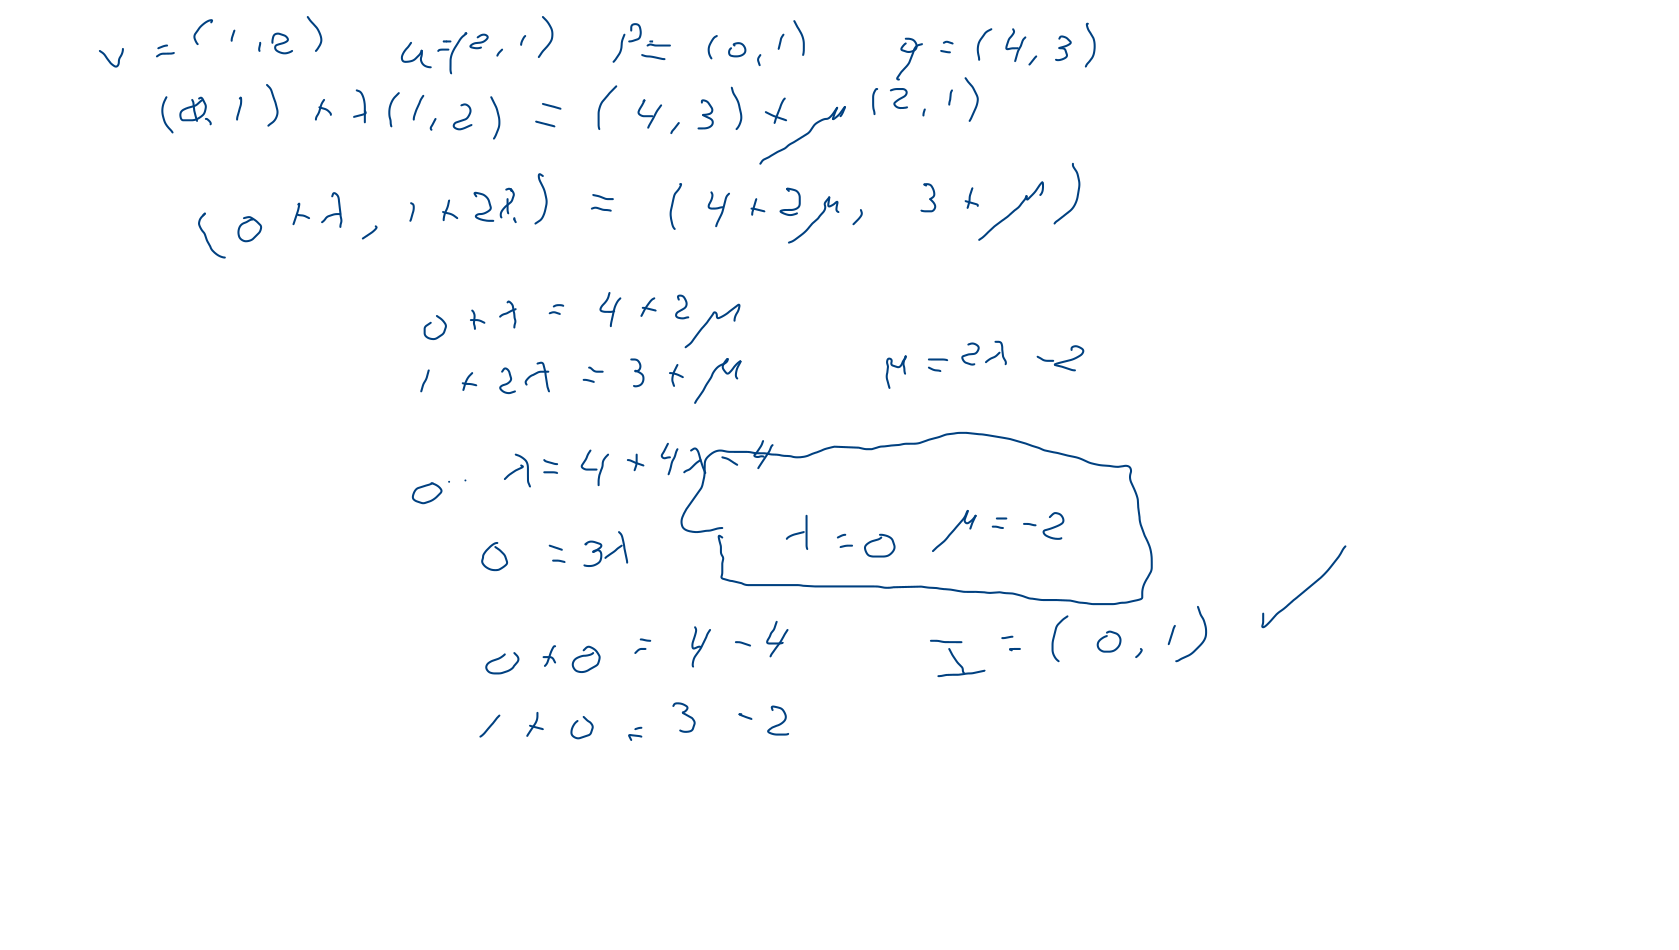 v = (1,2) u=(2,1) p = (0,1) q = (4,3)
(0,1) + λ(1,2) = (4,3) + μ(2,1)
(0+λ, 1+2λ) = (4+2μ, 3+μ)
0+λ = 4+2μ
1+2λ = 3+μ μ = 2λ -2
λ = 4+4λ-4
0 = 3λ λ=0 μ=-2
0+0 = 4-4 I = (0,1) ✓
1+0 = 3 -2